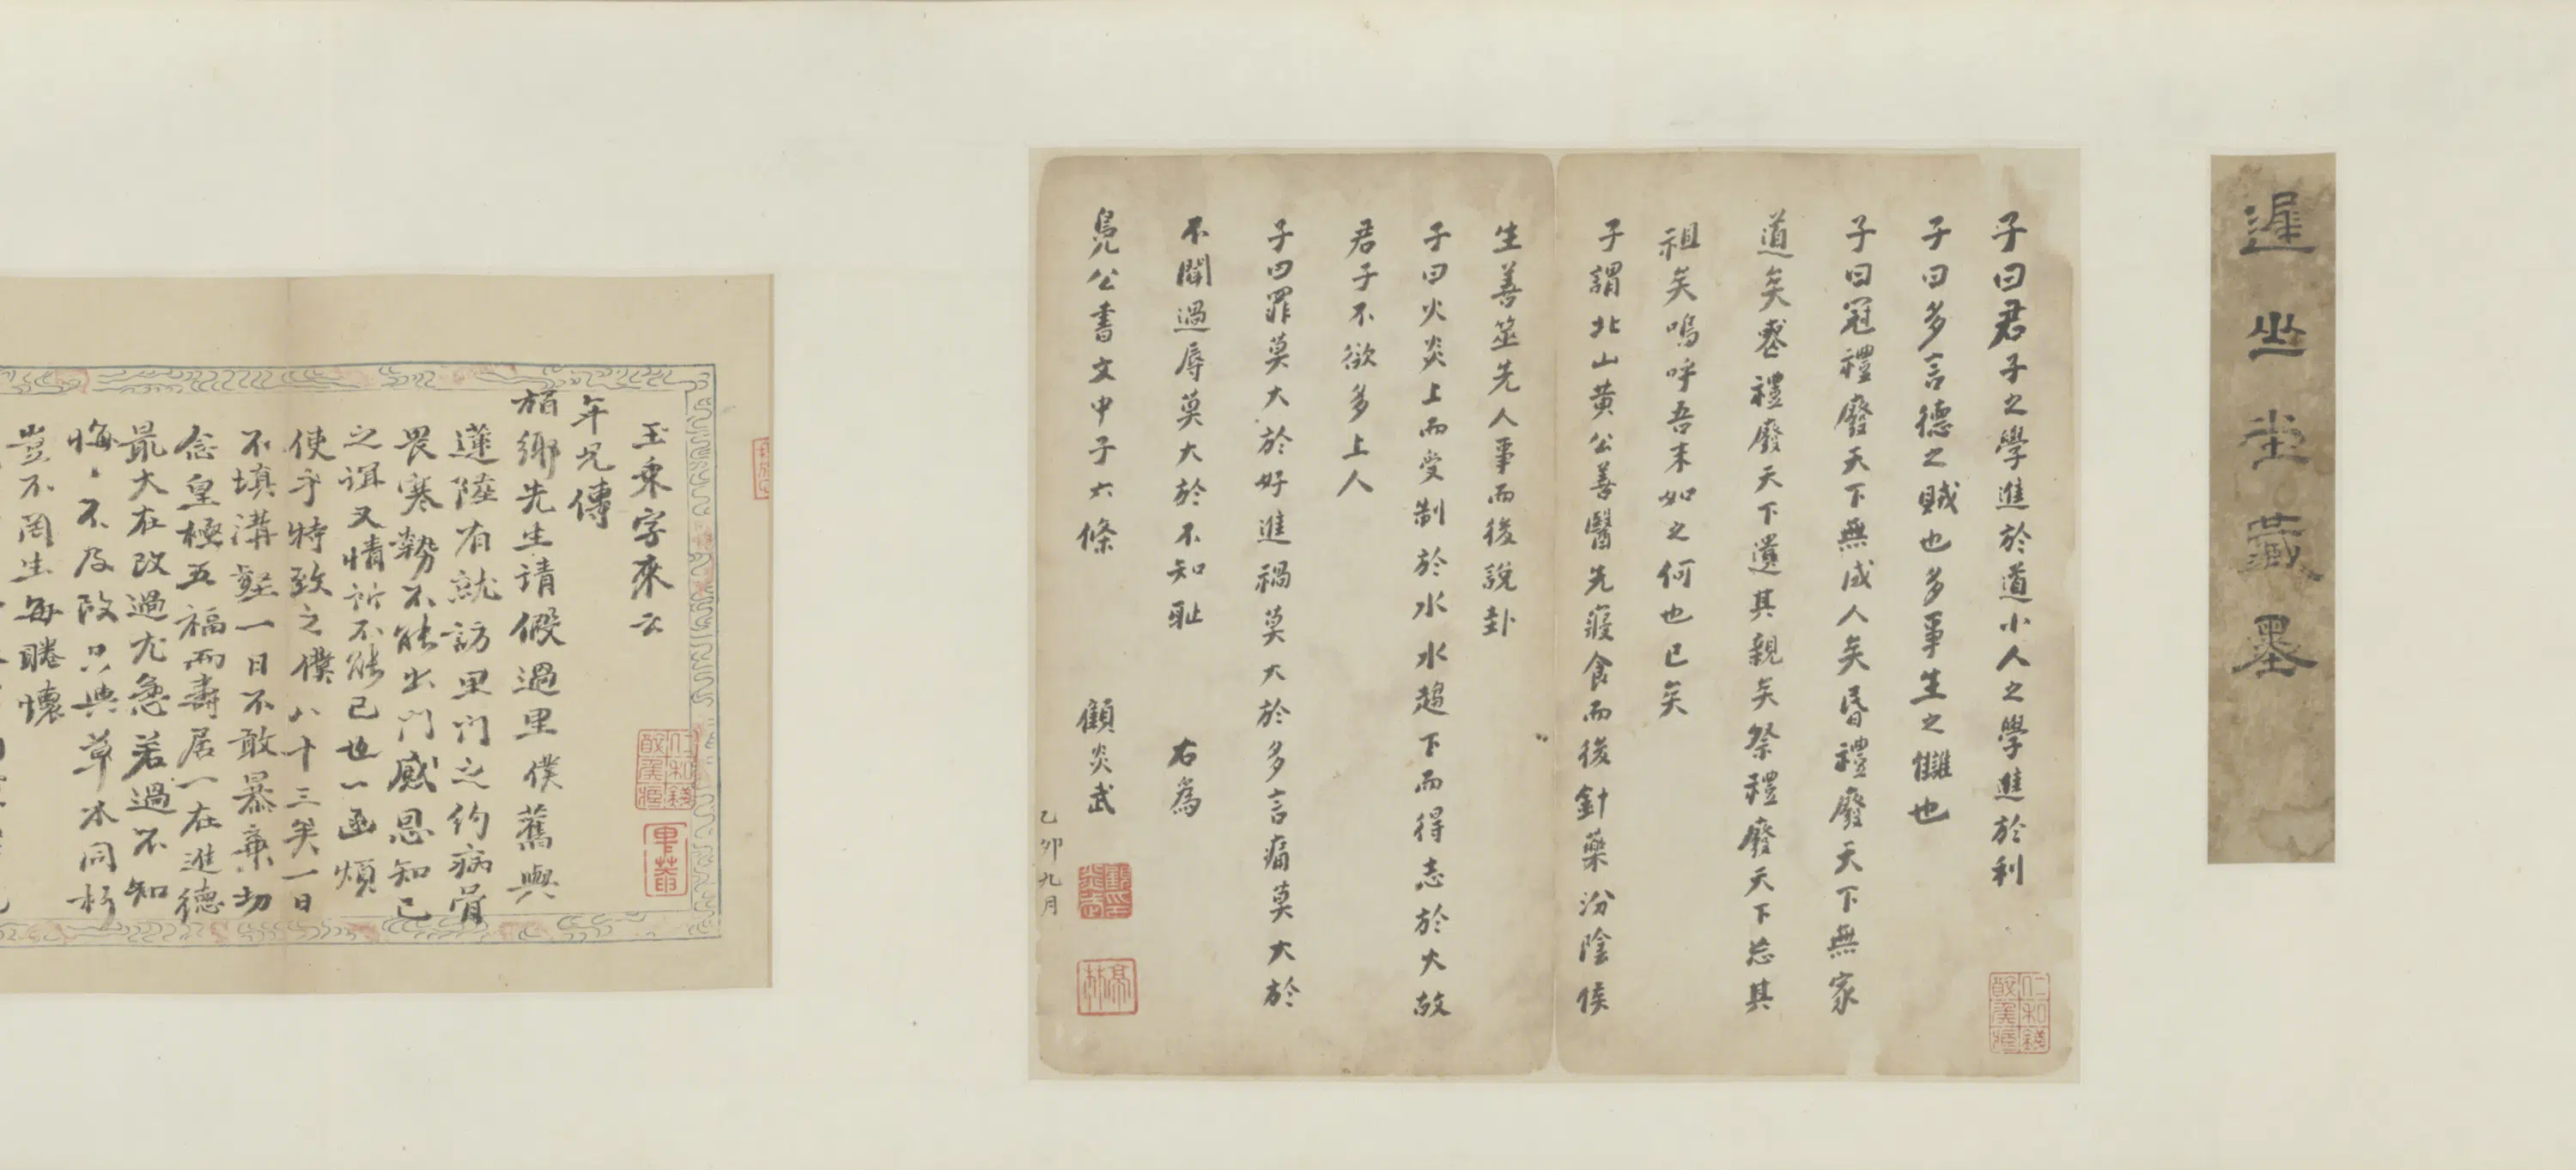 遲坐坐藏墨
子曰君子之學進於道小人之學進於利
子曰多言德之賊也多事生之讎也
子曰冠禮廢天下無成人矣昬禮廢天下無家
道矣喪禮廢天下遺其親矣祭禮廢天下忘其
祖矣嗚呼吾末如之何也已矣
子謂北山黃公善醫先寢食而後針藥汾陰侯
生善筮先人事而後說卦
子曰火炎上而受制於水水趨下而得志於火故
君子不欲多上人
子曰罪莫大於好進禍莫大於多言痛莫大於
不聞過辱莫大於不知恥 右爲
公書文中子六條 顧炎武
乙卯九月
玉乘字來云
年兄傳
鄉先生請假過里僕舊與
蓮陸有就訪里門之約病骨
畏寒勢不能出門感恩知己
之誼又情所不能已也一函煩
使乎特致之僕八十三矣一日
不填溝壑一日不敢暴棄切
念皇極五福而壽居一在進德
最大在改過尤急若過不知
悔不及改只與草木同朽
豈不罔生每睠懷